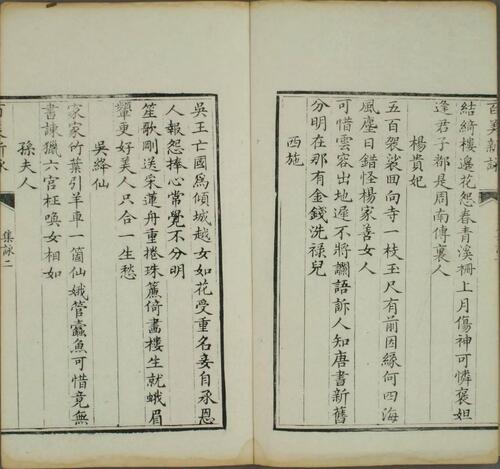 百美新詠
結綺樓邊花怨春青溪柵上月傷神可憐褒妲
逢君子都是周南傳裏人
楊貴妃
五百袈裟回向寺一枝玉尺有前因緣何四海
風塵日錯怪楊家善女人
可惜雲容出地遲不將讕語訴人知唐書新舊
分明在那有金錢洗祿兒
西施
吳王亡國爲傾城越女如花受重名妾自承恩
人報怨捧心常覺不分明
笙歌剛送采蓮舟重捲珠簾倚畫樓生就蛾眉
顰更好美人只合一生愁
吳絳仙
家家竹葉引羊車一箇仙娥管蠹魚可惜竟無
書諫獵六宮枉喚女相如
孫夫人
集詠二